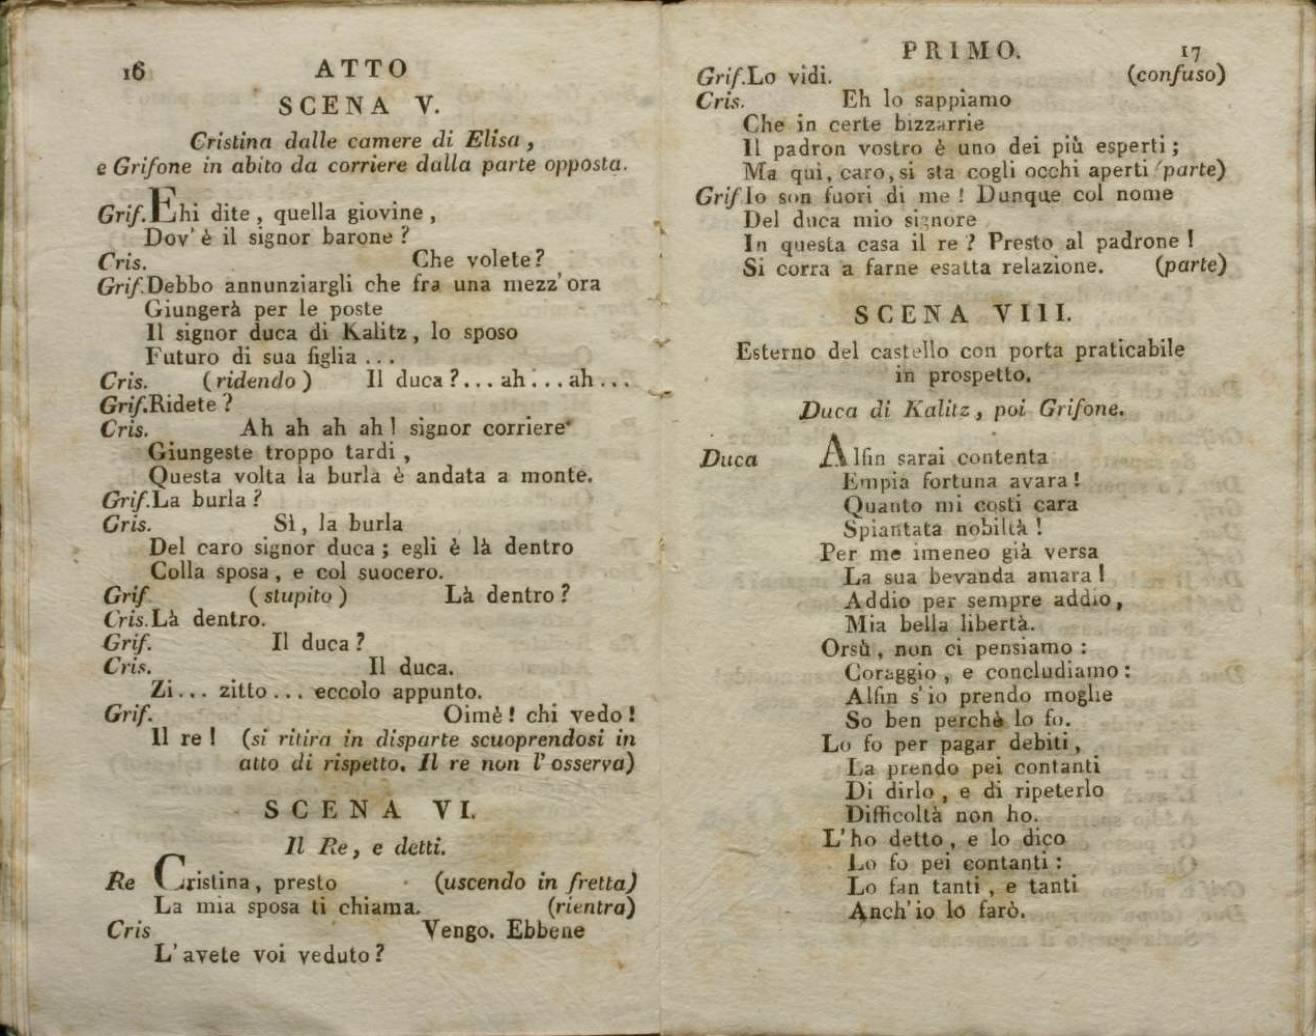 16 ATTO
SCENA V.
Cristina dalle camere di Elisa,
e Grifone in abito da corriere dalla parte opposta.
Grif. Ehi dite, quella giovine,
Dov' è il signor barone?
Cris. Che volete?
Grif. Debbo annunziargli che fra una mezz'ora
Giungerà per le poste
Il signor duca di Kalitz, lo sposo
Futuro di sua figlia ...
Cris. (ridendo) Il duca?... ah... ah...
Grif. Ridete?
Cris. Ah ah ah ah! signor corriere
Giungeste troppo tardi,
Questa volta la burla è andata a monte.
Grif. La burla?
Cris. Sì, la burla
Del caro signor duca; egli è là dentro
Colla sposa, e col suocero.
Grif (stupito) Là dentro?
Cris. Là dentro.
Grif. Il duca?
Cris. Il duca.
Zi... zitto... eccolo appunto.
Grif. Oimè! chi vedo!
Il re! (si ritira in disparte scuoprendosi in
atto di rispetto. Il re non l'osserva)
SCENA VI.
Il Re, e detti.
Re Cristina, presto (uscendo in fretta)
La mia sposa ti chiama. (rientra)
Cris Vengo. Ebbene
L'avete voi veduto?
PRIMO. 17
Grif. Lo vidi. (confuso)
Cris. Eh lo sappiamo
Che in certe bizzarrie
Il padron vostro è uno dei più esperti;
Ma qui, caro, si sta cogli occhi aperti (parte)
Grif Io son fuori di me! Dunque col nome
Del duca mio signore
In questa casa il re? Presto al padrone!
Si corra a farne esatta relazione. (parte)
SCENA VIII.
Esterno del castello con porta praticabile
in prospetto.
Duca di Kalitz, poi Grifone.
Duca Alfin sarai contenta
Empia fortuna avara!
Quanto mi costi cara
Spiantata nobiltà!
Per me imeneo già versa
La sua bevanda amara!
Addio per sempre addio,
Mia bella libertà.
Orsù, non ci pensiamo:
Coraggio, e concludiamo:
Alfin s'io prendo moglie
So ben perchè lo fo.
Lo fo per pagar debiti,
La prendo pei contanti
Di dirlo, e di ripeterlo
Difficoltà non ho.
L'ho detto, e lo dico
Lo fo pei contanti:
Lo fan tanti, e tanti
Anch'io lo farò.